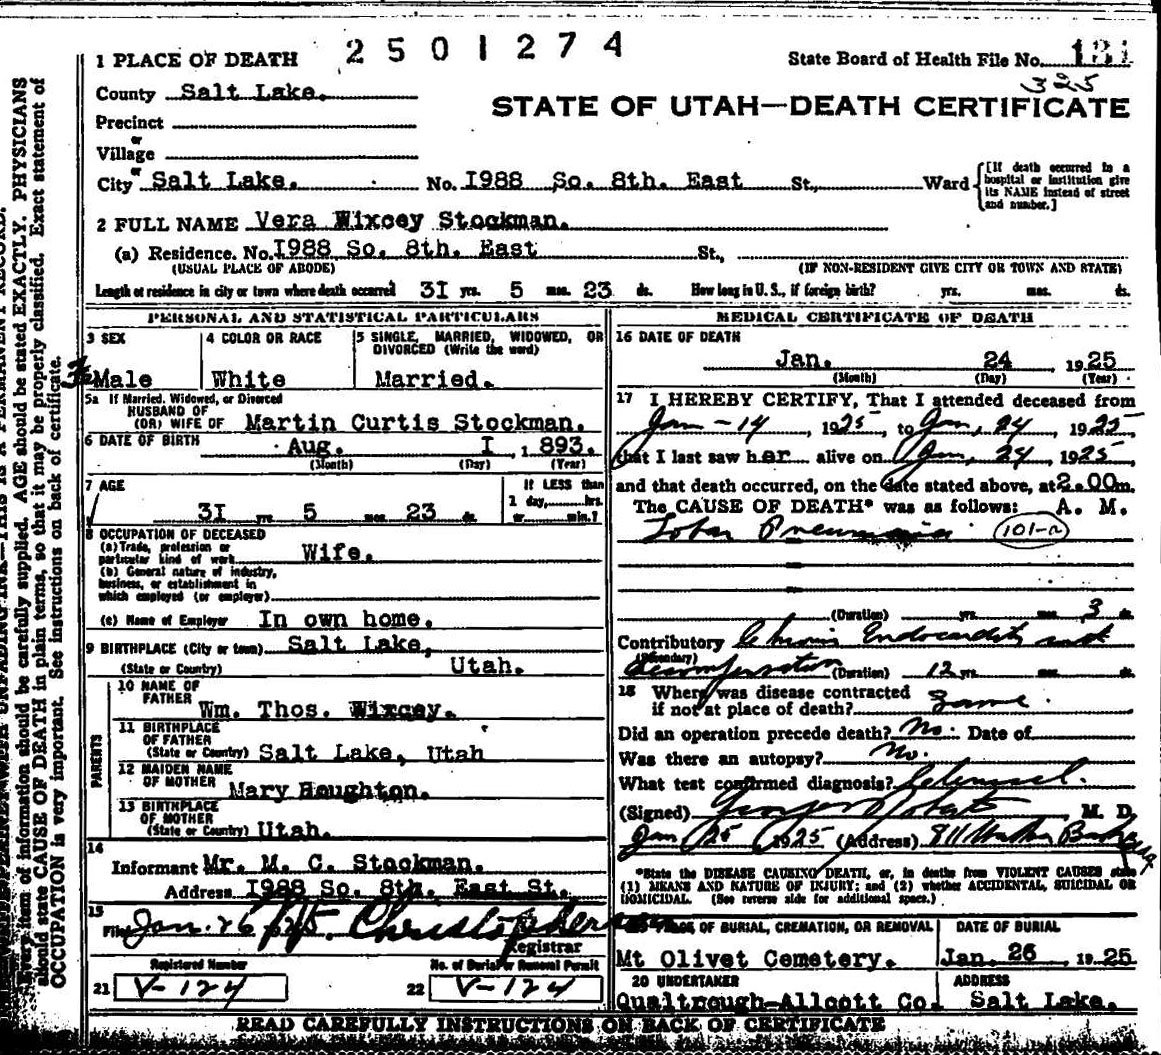 2501274
1 PLACE OF DEATH
State Board of Health File No. 131
325
County Salt Lake.
STATE OF UTAH—DEATH CERTIFICATE
Precinct
or
Village
or
City Salt Lake. No. I988 So. 8th. East St., Ward
[If death occurred in a hospital or institution give its NAME instead of street and number.]
2 FULL NAME Vera Wixcey Stockman.
(a) Residence. No. I988 So. 8th. East St.,
(USUAL PLACE OF ABODE) (IF NON-RESIDENT GIVE CITY OR TOWN AND STATE)
Length of residence in city or town where death occurred 3I yrs. 5 mos. 23 ds. How long in U. S., if foreign birth? yrs. mos. ds.
PERSONAL AND STATISTICAL PARTICULARS
3 SEX 4 COLOR OR RACE 5 SINGLE, MARRIED, WIDOWED, OR DIVORCED (Write the word)
Male White Married.
5a If Married, Widowed, or Divorced
HUSBAND OF
(OR) WIFE OF Martin Curtis Stockman.
6 DATE OF BIRTH Aug. I , 1 893.
(Month) (Day) (Year)
7 AGE If LESS than
1 day, hrs.
3I yrs 5 mos 23 ds. or min.?
8 OCCUPATION OF DECEASED
(a) Trade, profession or
particular kind of work Wife.
(b) General nature of industry,
business, or establishment in
which employed (or employer)
(c) Name of Employer In own home.
9 BIRTHPLACE (City or town) Salt Lake,
(State or Country) Utah.
PARENTS
10 NAME OF
FATHER Wm. Thos. Wixcey.
11 BIRTHPLACE
OF FATHER
(State or Country) Salt Lake, Utah
12 MAIDEN NAME
OF MOTHER Mary Houghton.
13 BIRTHPLACE
OF MOTHER
(State or Country) Utah.
14
Informant Mr. M. C. Stockman.
Address I988 So. 8th. East St.
15
Filed Jan. 26 1925. Christophersen
Registrar
Registered Number No. of Burial or Removal Permit
21 V-124 22 V-124
MEDICAL CERTIFICATE OF DEATH
16 DATE OF DEATH
Jan. 24 1925
(Month) (Day) (Year)
17 I HEREBY CERTIFY, That I attended deceased from
Jan-14, 1925, to Jan, 24, 1925,
that I last saw her alive on Jan, 24, 1925,
and that death occurred, on the date stated above, at 2.00 m.
The CAUSE OF DEATH* was as follows: A. M.
Lobar Pneumonia 101-a
(Duration) yrs. mos. 3 ds.
Contributory Chronic Endocarditis and
(Secondary) decompensation (Duration) 12 yrs.
18 Where was disease contracted
if not at place of death? Same.
Did an operation precede death? No. Date of
Was there an autopsy? No.
What test confirmed diagnosis? Clinical.
(Signed) George Roberts M. D.
Jan 25 1925 (Address) 811
*State the DISEASE CAUSING DEATH, or, in deaths from VIOLENT CAUSES state
(1) MEANS AND NATURE OF INJURY; and (2) whether ACCIDENTAL, SUICIDAL OR
HOMICIDAL. (See reverse side for additional space.)
PLACE OF BURIAL, CREMATION, OR REMOVAL DATE OF BURIAL
Mt Olivet Cemetery. Jan. 26 1925
20 UNDERTAKER ADDRESS
Qualtrough-Allcott Co. Salt Lake.
READ CAREFULLY INSTRUCTIONS ON BACK OF CERTIFICATE
THIS IS A PERMANENT RECORD.
Every item of information should be carefully supplied. AGE should be stated EXACTLY. PHYSICIANS
should state CAUSE OF DEATH in plain terms, so that it may be properly classified. Exact statement of
OCCUPATION is very important. See instructions on back of certificate.